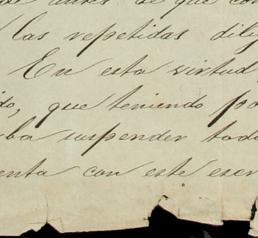 de antes de que con
las repetidas dili
En esta virtud
do, que teniendo po
ba suspender tod
enta con este escr